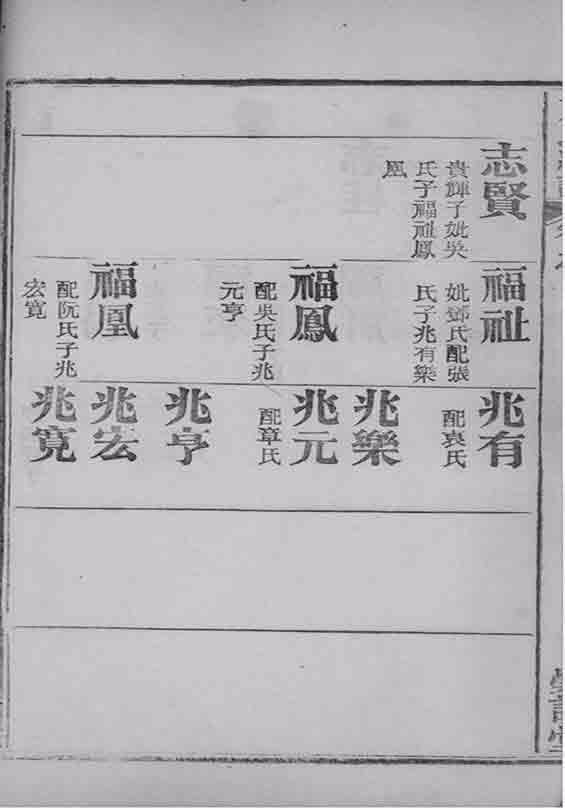 志賢
貴輝子妣吳
氏子福祉鳳
凰
福祉
妣鄧氏配張
氏子兆有樂
福鳳
配吳氏子兆
元亨
福凰
配阮氏子兆
宏寬
兆有
配袁氏
兆樂
兆元
配章氏
兆亨
兆宏
兆寬